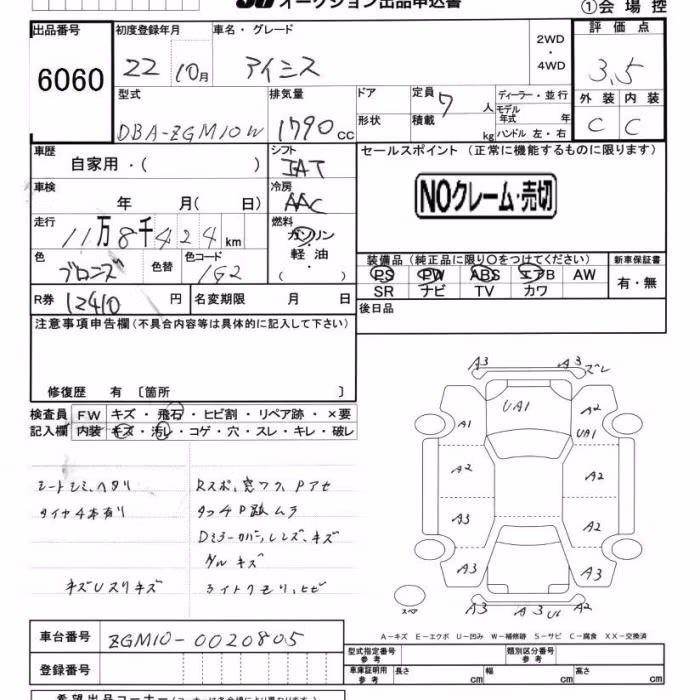 オークション出品申込書
①会場控
出品番号
6060
初度登録年月
22 10月
車名・グレード
アイシス
2WD
・
4WD
評価点
3.5
外装 内装
C C
型式
DBA-ZGM10W
排気量
1790 CC
ドア
形状
定員
7 人
積載
kg
ディーラー・並行
モデル
年式 年
ハンドル 左・右
車歴
自家用・( )
シフト
IAT
冷房
AAC
セールスポイント (正常に機能するものに限ります)
NOクレーム・売切
車検
年 月( 日)
走行
11万8千424 km
燃料
ガソリン
軽油
・
( )
色
ブロンズ
色替
色コード
1G2
装備品(純正品に限り○をつけてください)
PS PW ABS エアB AW
SR ナビ TV カワ
新車保証書
有・無
R券 12410 円
名変期限 月 日
後日品
注意事項申告欄(不具合内容等は具体的に記入して下さい)
修復歴 有 〔箇所 〕
検査員
記入欄
FW キズ・飛石・ヒビ割・リペア跡・×要
内装 キズ・汚レ・コゲ・穴・スレ・キレ・破レ
シートシミ、ヘタリ
タイヤ4本有り
Rスポ、窓ワク、Pアセ
Dミラーカバー、レンズ、キズ
グル キズ
ライトクモリ、ヒビ
A3
A3 ズレ
UA1
A2
A1
UA1
A2
A2
A3
A2
A3
A3
A3 U6 A2
スペア
A-キズ E-エクボ U-凹み W-補修跡 S-サビ C-腐食 XX-交換済
車台番号
ZGM10-0020805
登録番号
型式指定番号
参考
類別区分番号
参考
車庫証明用
参考
長さ cm
幅 cm
高さ cm
希望出品コーナー